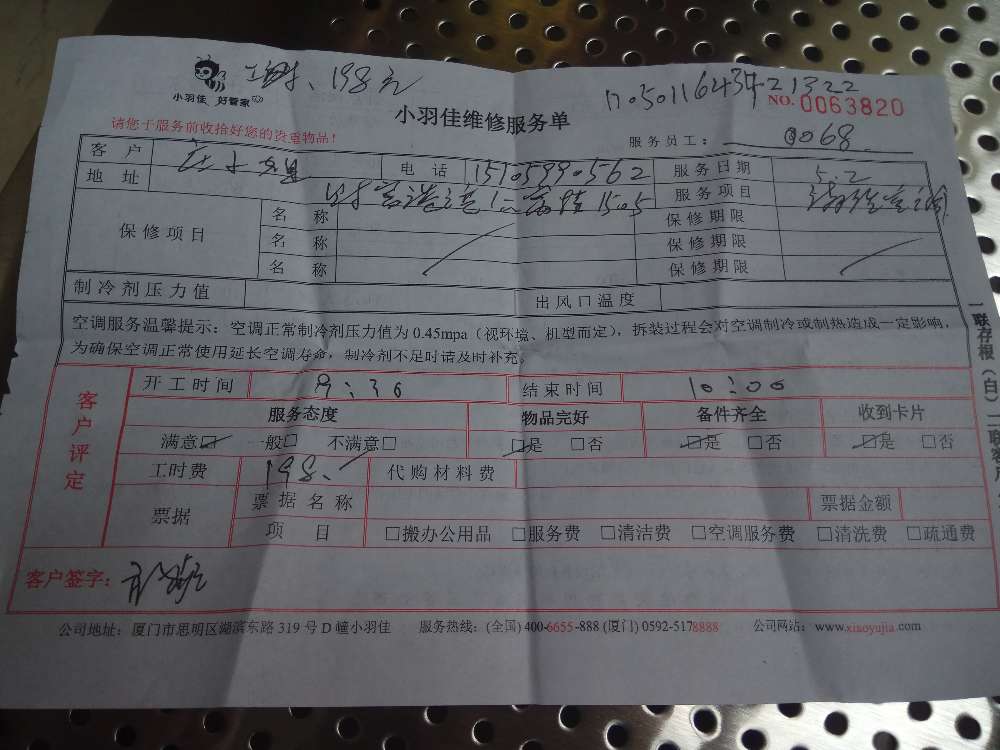 198元
1705011643421322
小羽佳 好管家
小羽佳维修服务单
NO. 0063820
请您于服务前收拾好您的贵重物品！
服务员工： 0068
客 户 电 话 15105990562 服务日期 5.2
地 址 1505 服务项目
保修项目
名 称 保修期限
名 称 保修期限
名 称 保修期限
制冷剂压力值 出风口温度
空调服务温馨提示：空调正常制冷剂压力值为 0.45mpa（视环境、机型而定），拆装过程会对空调制冷或制热造成一定影响，
为确保空调正常使用延长空调寿命，制冷剂不足时请及时补充。
客户评定
开工时间 9:30 结束时间 10:00
服务态度 物品完好 备件齐全 收到卡片
满意☑ 一般□ 不满意□ ☑是 □否 ☑是 □否 ☑是 □否
工时费 198. 代购材料费
票据
票据名称 票据金额
项 目 □搬办公用品 □服务费 □清洁费 □空调服务费 □清洗费 □疏通费
客户签字：
公司地址：厦门市思明区湖滨东路 319 号 D 幢小羽佳 服务热线：(全国) 400-6655-888 (厦门) 0592-5178888 公司网站：www.xiaoyujia.com
一联存根（白）二联客户